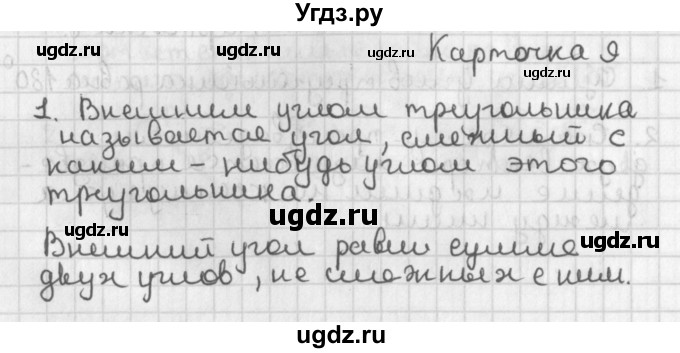 Угдз.ру
ugdz.ru ugdz.ru ugdz.ru
Карточка 9
ugdz.ru
1. Внешним углом треугольника
называется угол, смежный с
каким-нибудь углом этого
треугольника.
ugdz.ru ugdz.ru ugdz.ru
ugdz.ru ugdz.ru ugdz.ru
Внешний угол равен сумме
двух углов, не смежных с ним.
ugdz.ru ugdz.ru
ugdz.ru